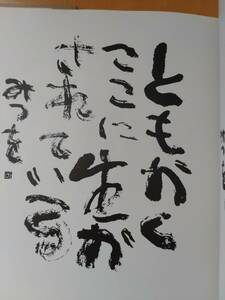 ともかく
ここに生が
されている
みつを